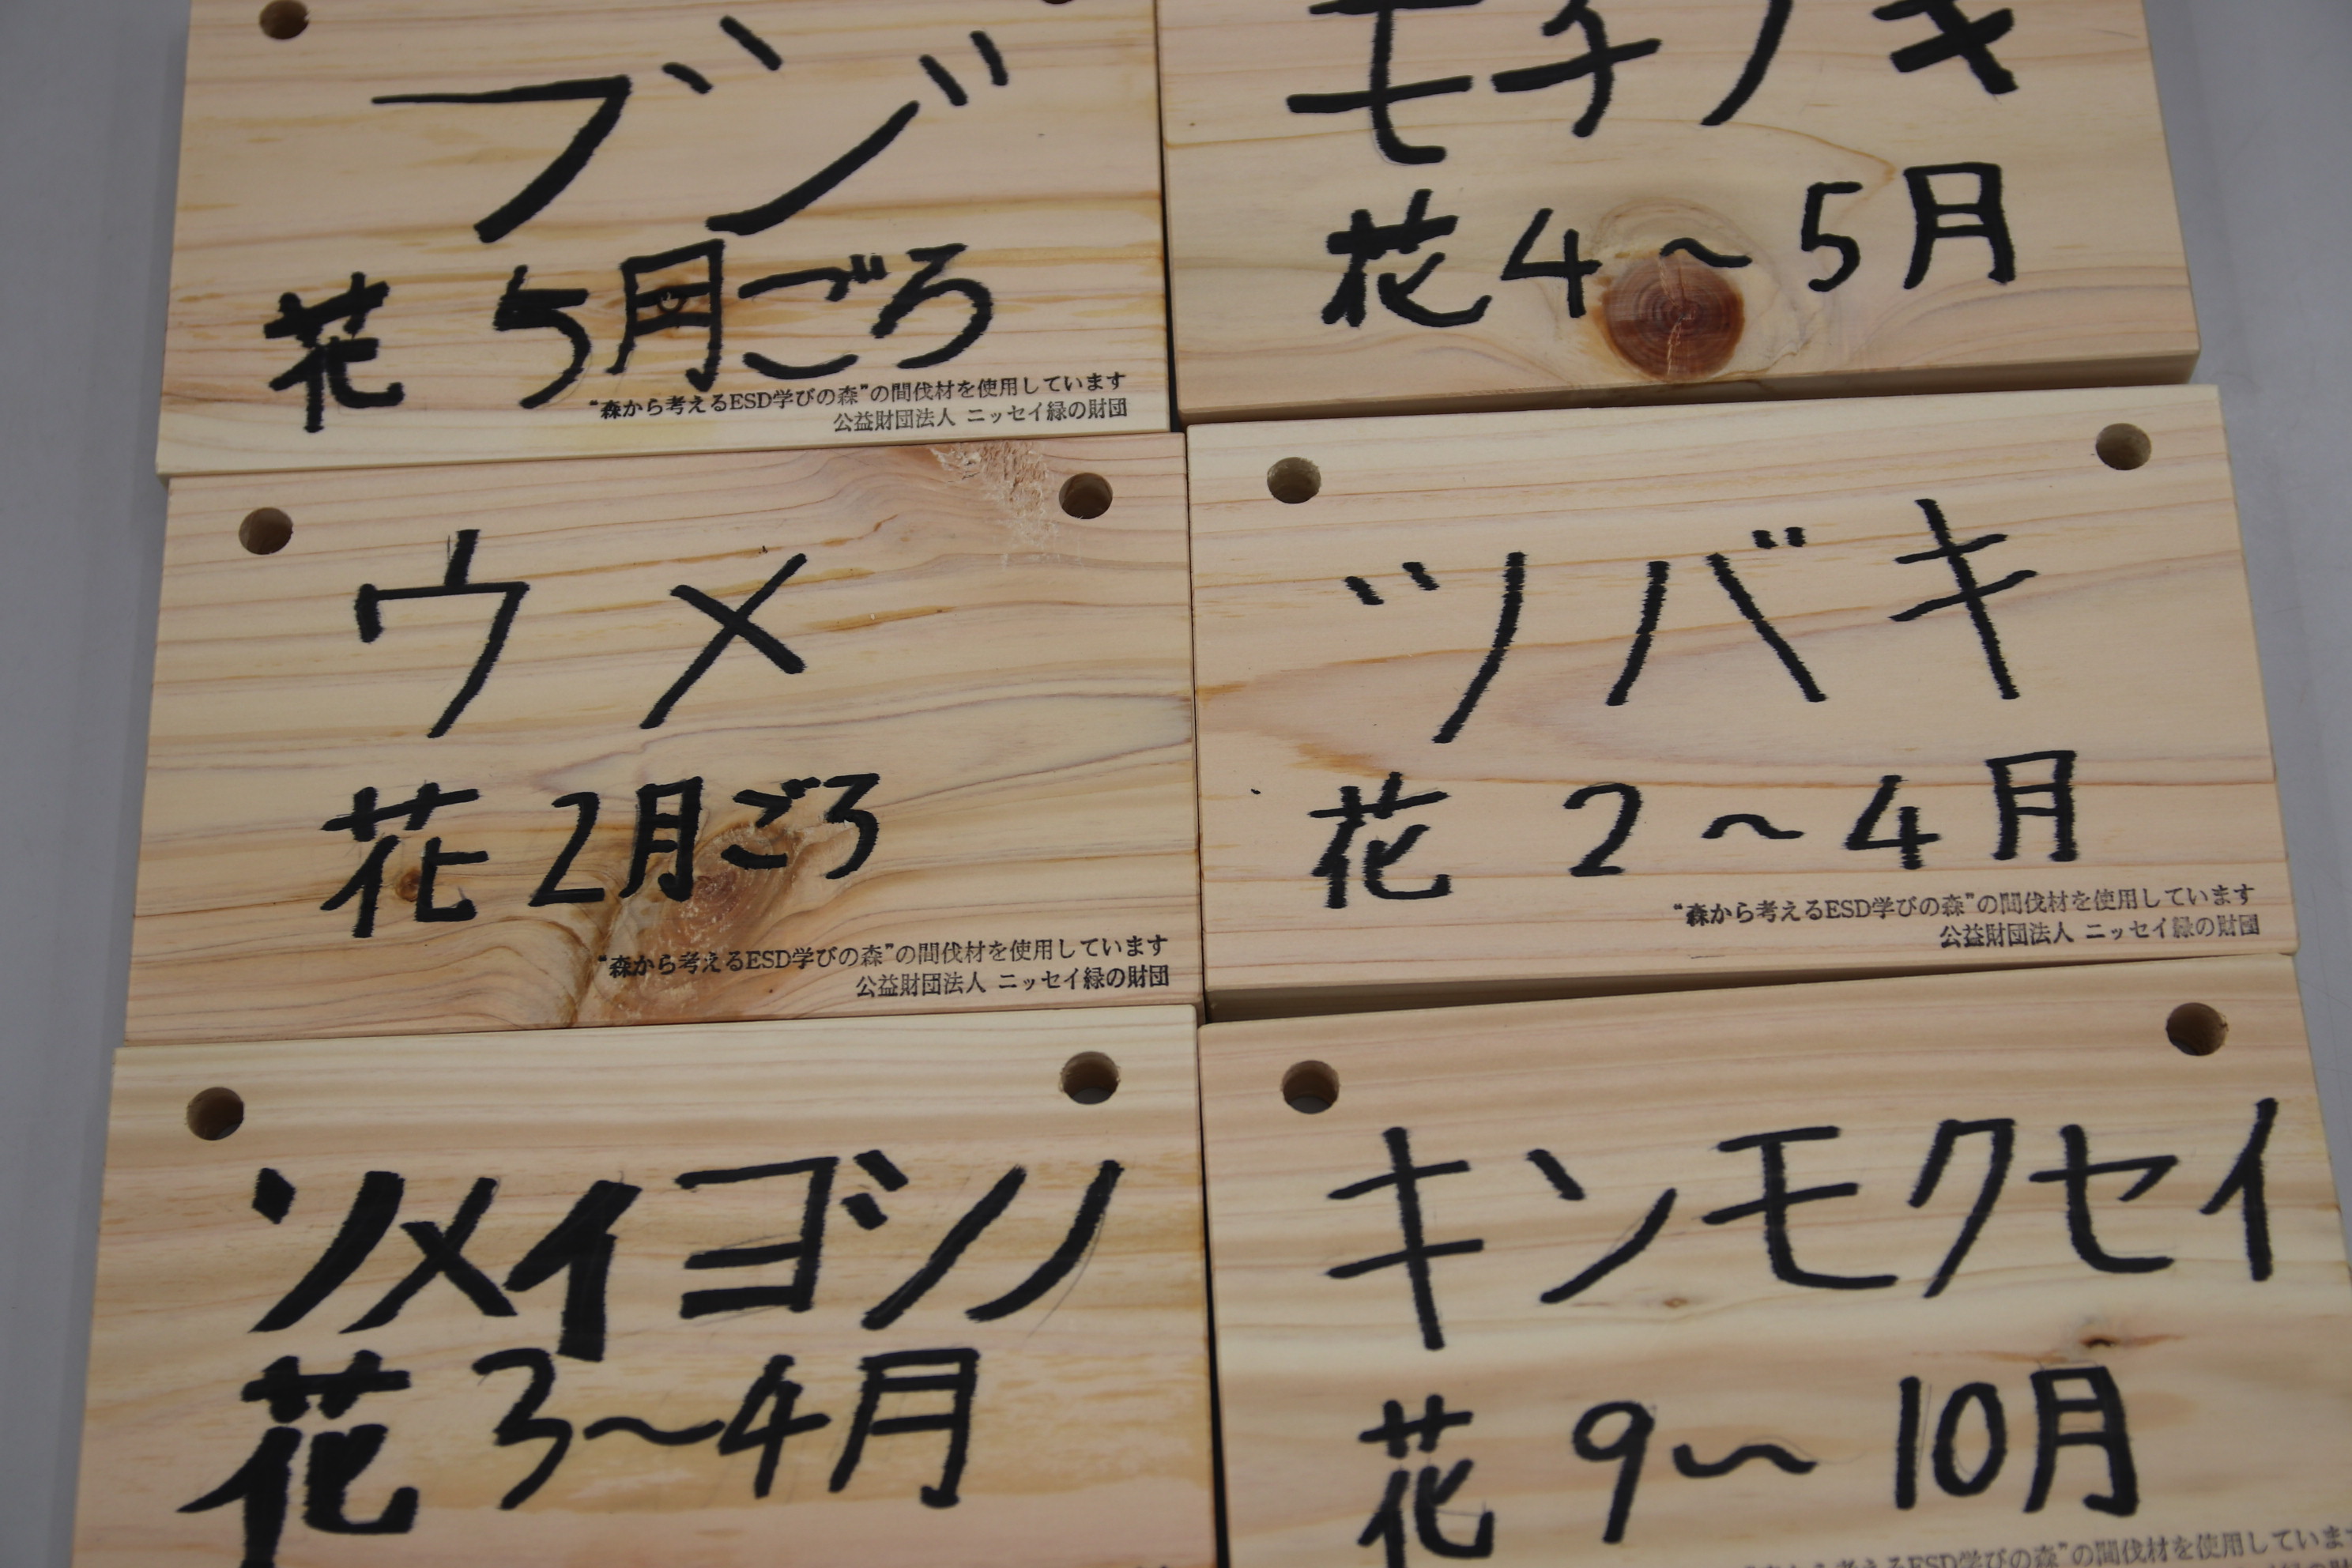 フジ
花 5月ごろ
“森から考えるESD学びの森”の間伐材を使用しています
公益財団法人 ニッセイ緑の財団
モチノキ
花 4～5月
ウメ
花 2月ごろ
“森から考えるESD学びの森”の間伐材を使用しています
公益財団法人 ニッセイ緑の財団
ツバキ
花 2～4月
“森から考えるESD学びの森”の間伐材を使用しています
公益財団法人 ニッセイ緑の財団
ソメイヨシノ
花 3～4月
キンモクセイ
花 9～10月
“森から考えるESD学びの森”の間伐材を使用していま